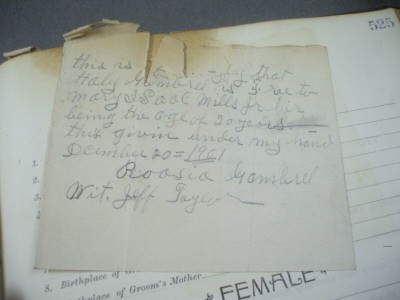 525
this is to
that
Haly Gambrel is free to
mary Isaac Mills Jr her
being the age of 20 years
this givin under my hand
Dcember 20 = 1961
Roosia Gambrel
Wit. Jeff Taylor
1.
2.
3.
4.
8. Birthplace of
Birthplace of Groom's Mother
"FEMALE"